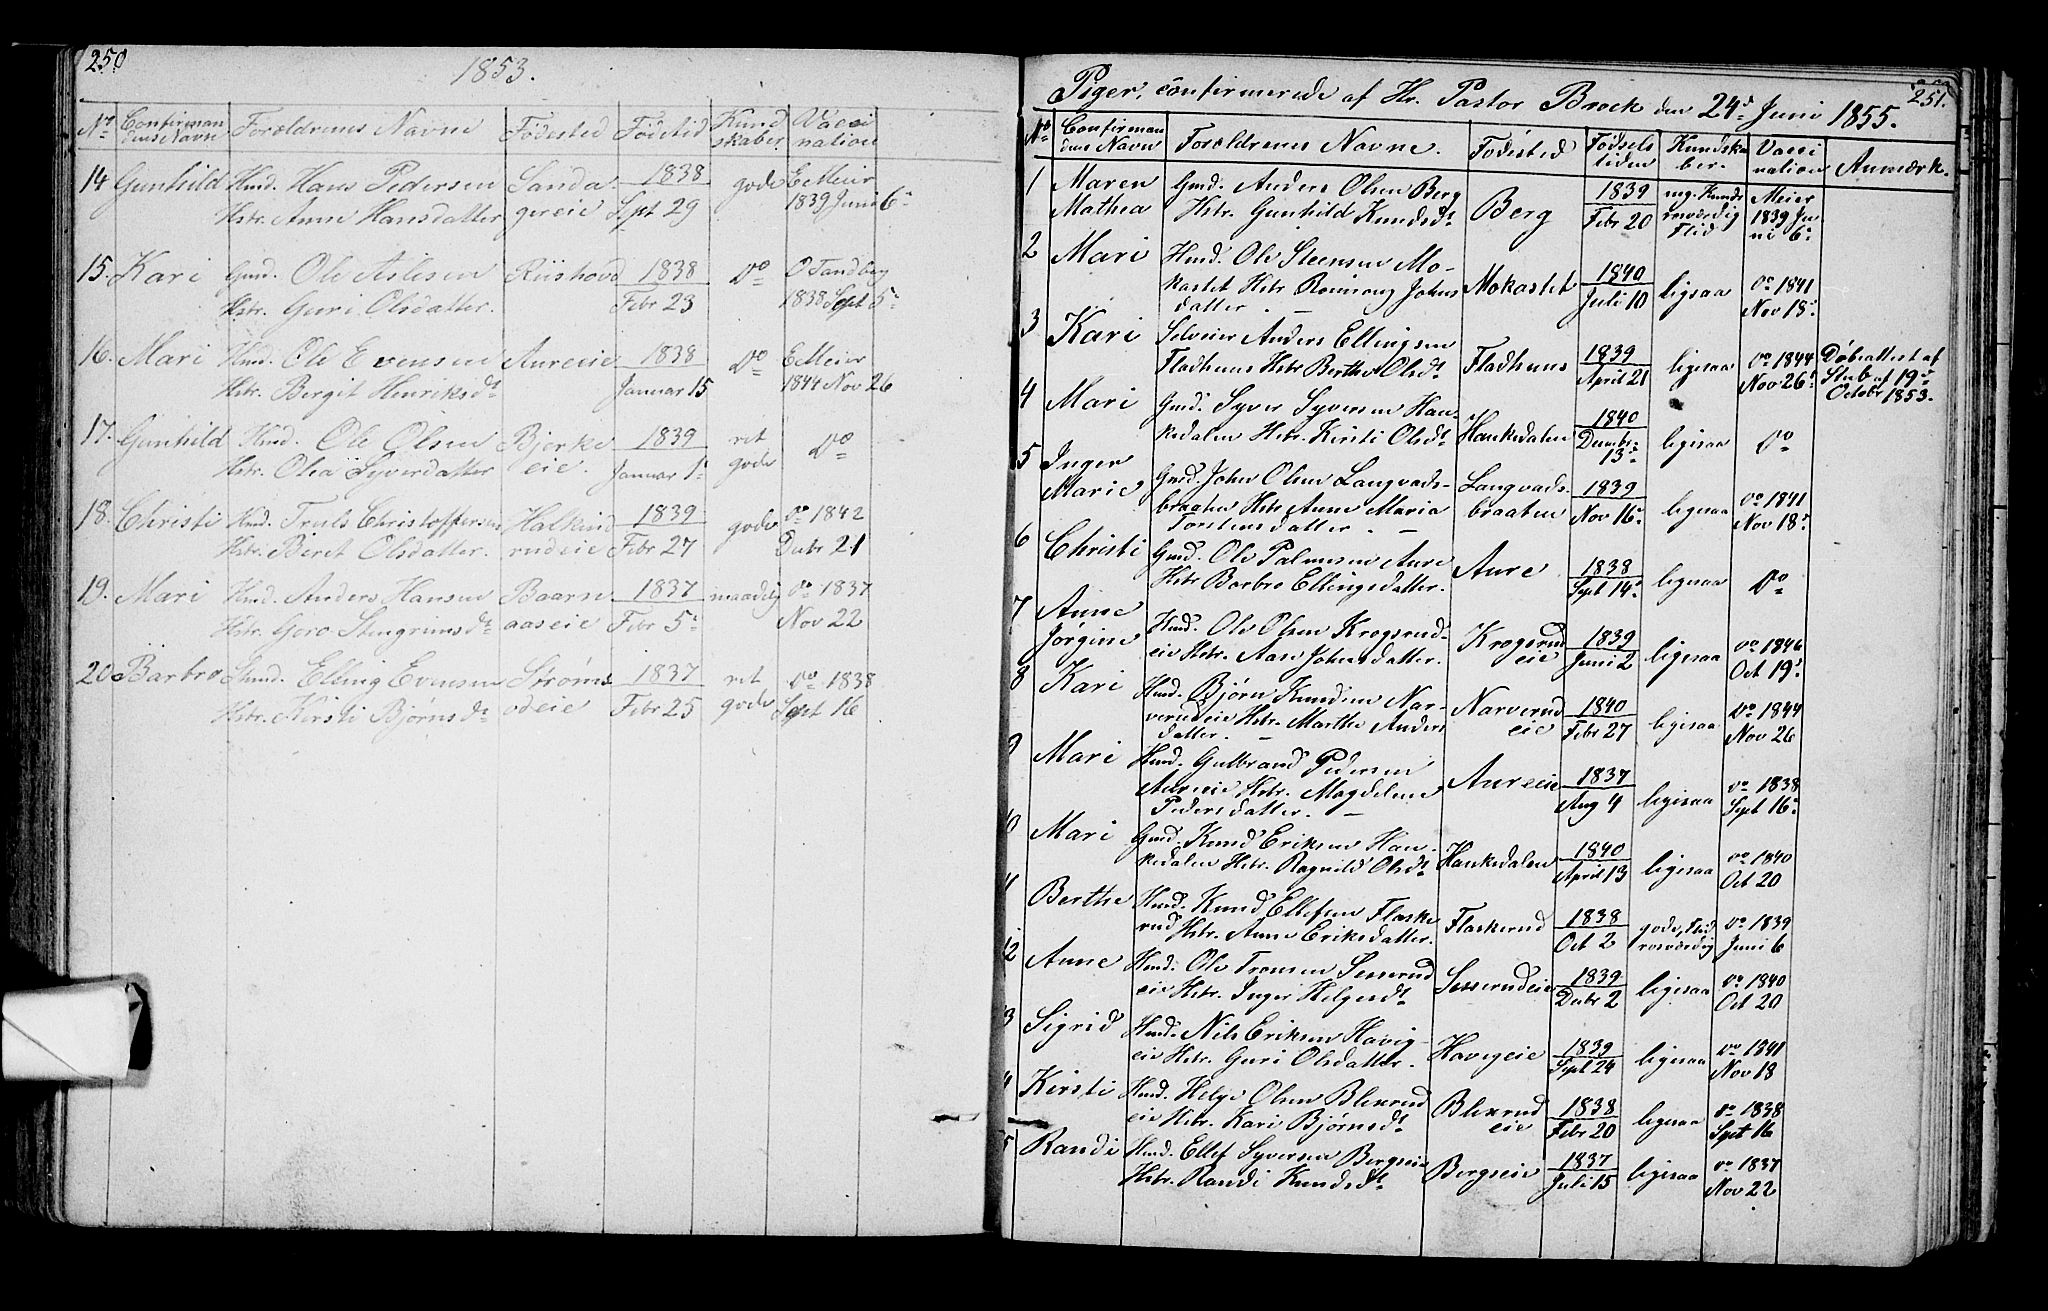 250
1853.
No Confirman Forældrenes Navne Fødested Fødetid Kund Vacci
dens Navn skaber nation
14 Gunhild Hmd. Hans Pedersen Sanda 1838 gode E Meier
Hstr. Anne Hansdatter gereie Sept 29 1839 Juni 6
15. Kari Gmd. Ole Aslesen Riishovd 1838 Do O Sandberg
Hstr. Guri Olsdatter. Febr 23 1838 Sept 5
16. Mari Hmd. Ole Evensen Aureeie 1838 Do E Meier
Hstr. Bergit Henriksdt Januar 15 1844 Nov 26
17. Gunhild Hmd. Ole Olsen Bjerke 1839 ret Do
Hstr. Olia Syverdatter eie. Januar 1 gode
18. Christi Hmd. Truls Christoffersen Halkind 1839 gode do 1842
Hstr. Beret Olsdatter. rudeie Febr 27 Decbr 21
19. Mari Hmd. Anders Hansen Baarn 1837 maadelig do 1837
Hstr. Goro Stengrimsdt aaseie Febr 5 Nov 22
20 Barbro Hmd. Elling Evensen Strøms 1837 ret do 1838
Hstr. Kirsti Bjørnsdt odeie Febr 25 gode Sept 16
251.
Piger, confirmerede af Hr. Pastor Brock den 24d Juni 1855.
No Confirman Forældrenes Navne. Fødested Fødsels Kundska Vacci Anmærk.
dens Navn tiden ber. nation
1 Maren Gmd. Anders Olsen Berg Berg 1839 mg. Kunds Meier
Mathea Hstr. Gunhild Knudsdt Febr 20 rosværdig Flid 1839 Juni 6
2 Mari Hmd. Ole Steensen Mo-
kastet Hstr. Ronnoug Johns Mokastet 1840 ligesaa do 1841
datter. Juli 10 Nov 18
3 Kari Selveier Anders Ellingsen
Fladhuus Hstr Berthe Olsdt Fladhuus 1839 ligesaa do 1844 Døbeattest af
April 21 Nov 26 Stub af 19
Octobr 1853.
4 Mari Gmd. Syver Syversen Han-
kedalen Hstr. Kirsti Olsdt Hankedalen 1840 ligesaa Do
Decmbr 13
5 Inger Gmd. John Olsen Langvads- Langvads- 1839 ligesaa do 1841
Marie braaten Hstr Anne Maria braaten Nov 16 Nov 18
Torstensdatter.
6 Christi Gmd. Ole Palmesen Aure Aure 1838 ligesaa Do
Hstr Barbro Ellingsdatter. Sept 14
7 Anne Hmd. Ole Olsen Krogsrud- Krogsrud 1839 ligesaa do 1846
Jørgine eie Hstr. Aase Johnsdatter. eie Juni 2 Oct 19
8 Kari Hmd. Bjørn Knudsen Nar- Narverud 1840 ligesaa Do 1844
verudeie Hstr. Marthe Anders eie Febr 27 Nov 26
datter.
9 Mari Hmd. Gulbrand Pedersen
Aureeie Hstr. Magdelene Aureeie 1837 ligesaa do 1838
Pedersdatter. Aug 4 Sept 16
10 Mari Gmd. Knud Eriksen Han-
kedalen Hstr. Ragnild Olsdt Hankedalen 1840 ligesaa do 1840
April 13 Oct 20
11 Berthe Hmd. Knud Ellefsen Flaske Flaskerud 1838 gode, Flid do 1839
rud Hstr. Anne Eriksdatter. Oct 2 rosværdig Juni 6
12 Anne Hmd. Ole Tronsen Sesserud Sesserudeie 1839 ligesaa do 1840
eie Hstr. Inger Helgesdt Decbr 2 Oct 20
13 Sigrid Hmd. Nils Eriksen Havig- Havigeie 1839 ligesaa do 1841
eie Hstr. Guri Olsdatter. Sept 24 Nov 18
14 Kirsti Hmd. Helge Olsen Blexrud Blexrud 1838 ligesaa do 1838
eie Hstr. Kari Bjørnsdt eie Febr 20 Sept 16
15 Randi Hmd. Ellef Syversen Bergseie Bergseie 1837 ligesaa do 1837
Hstr. Randi Knudsdt Juli 15 Nov 22